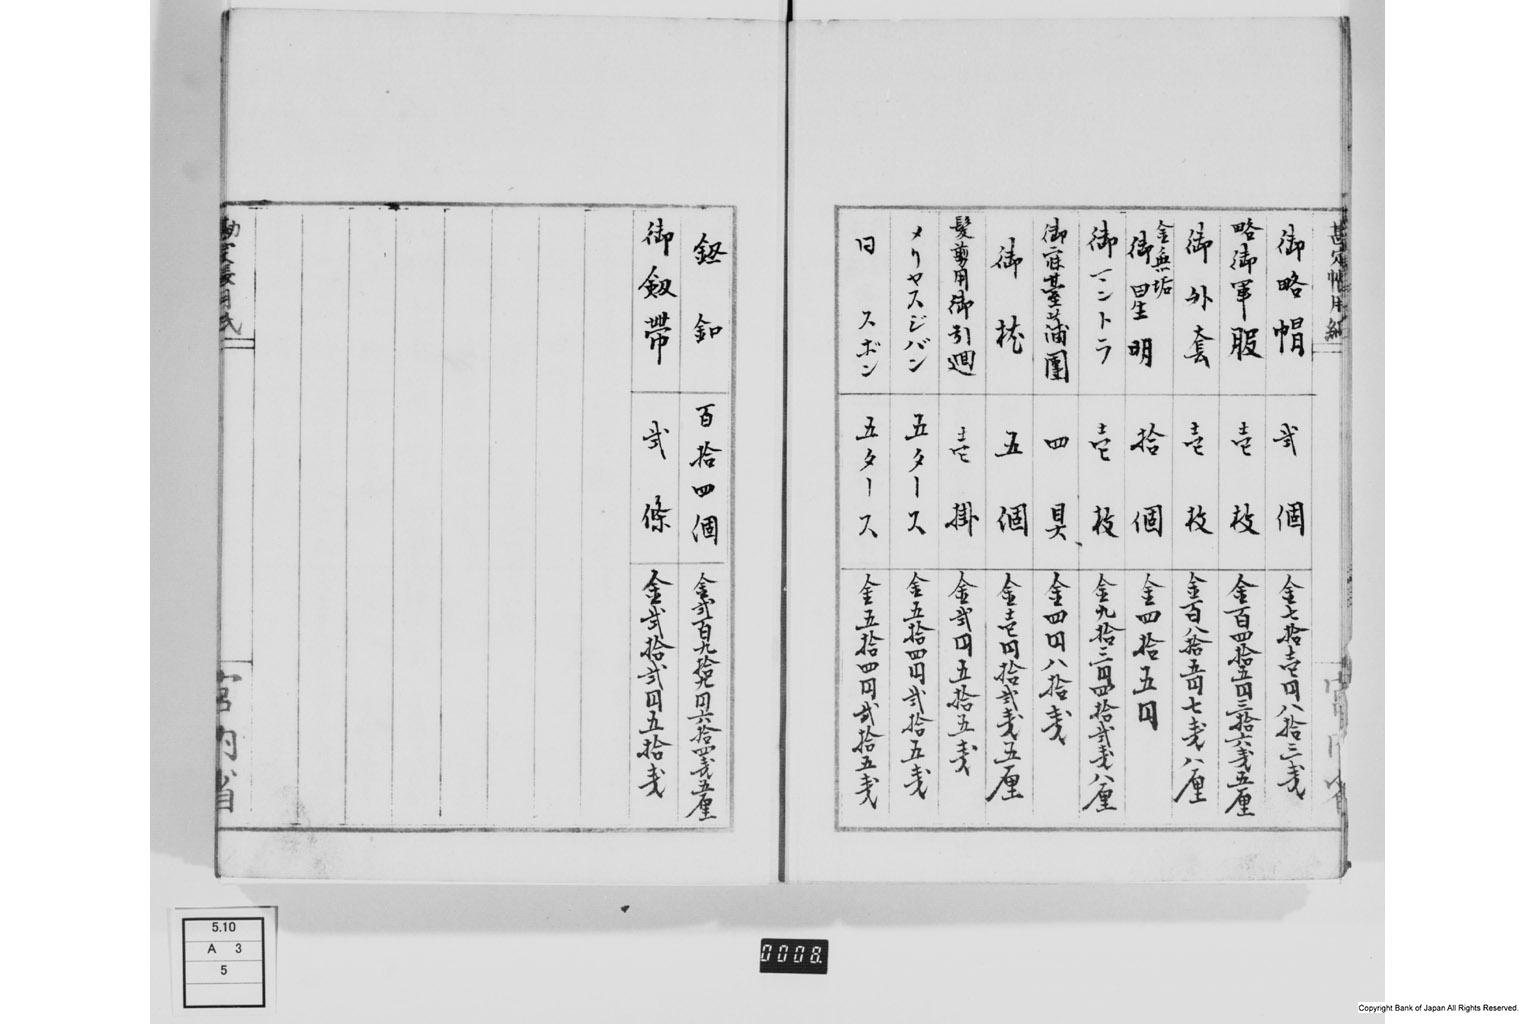 勘定帳用紙
御略帽 弐個 金七拾壱円八拾三戔
略御軍服 壱枚 金百四拾五円三拾六戔五厘
御外套 壱枚 金百八拾五円七戔八厘
金無垢御星明 拾個 金四拾五円
御マントラ 壱枚 金九拾三円四拾弐戔八厘
御寐臺蒲團 四具 金四円八拾戔
御枕 五個 金壱円拾弐戔五厘
髪剪用御引廻 壱掛 金弐円五拾五戔
メリヤスジバン 五タース 金五拾四円弐拾五戔
同 スボン 五タース 金五拾四円弐拾五戔
宮内省
釼釦 百拾四個 金弐百九拾九円六拾四戔五厘
御釼帯 弐條 金弐拾弐円五拾戔
勘定帳用紙
宮内省
5.10
A 3
5
0008.
Copyright Bank of Japan All Rights Reserved.